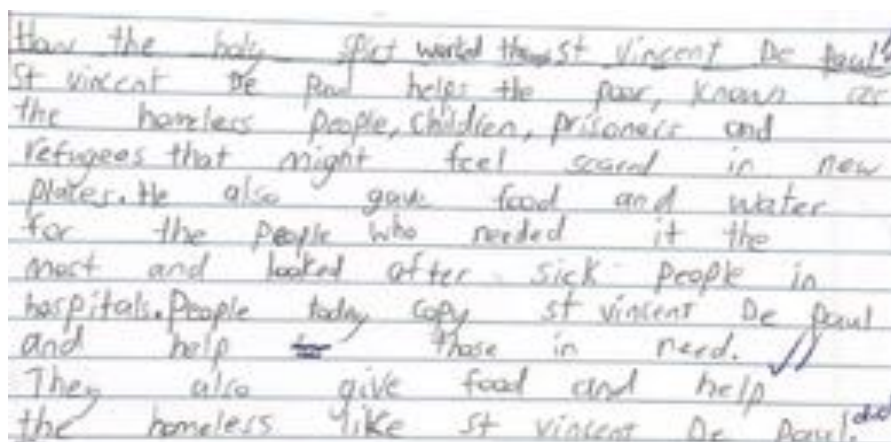 How the holy spirt worked through St vincent De Paul
St vincent De Paul helps the poor, known as
the homeless people, children, prisoners and
refugees that might feel scared in new
places. He also gave food and water
for the people who needed it the
most and looked after sick people in
hospitals. People today copy st vincent De paul
and help those in need.
They also give food and help
the homeless like st vincent De Paul did.